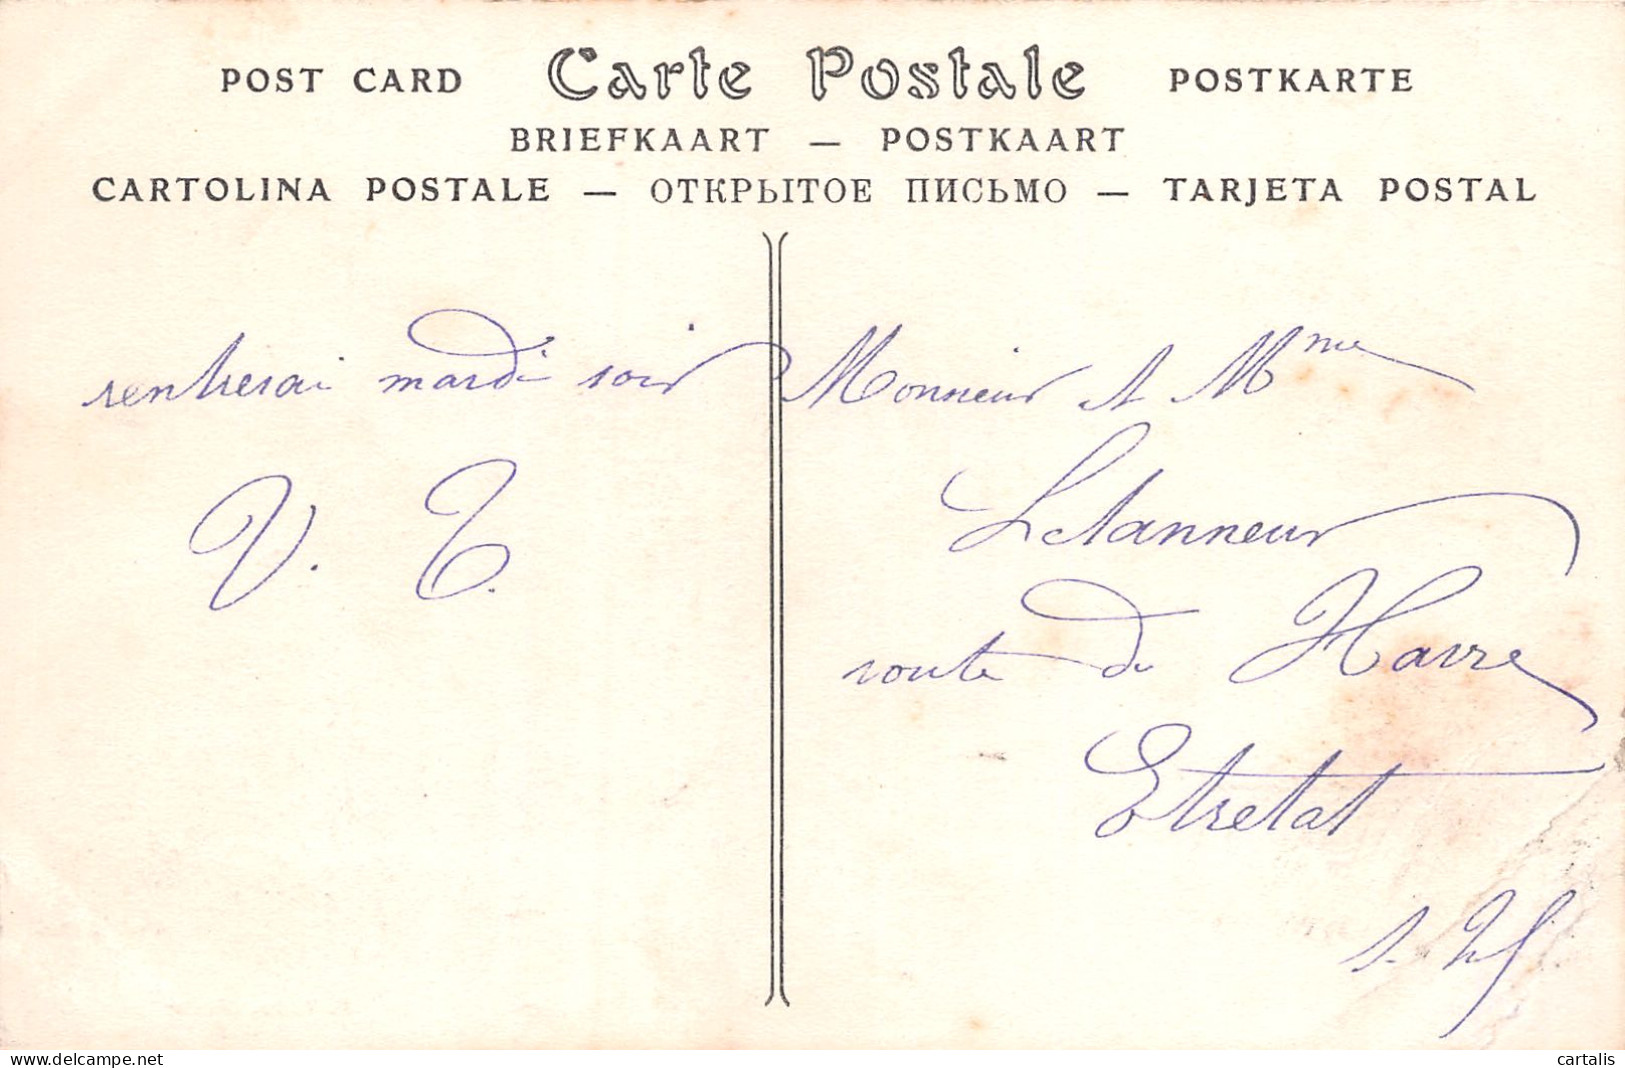 POST CARD Carte Postale POSTKARTE
BRIEFKAART — POSTKAART
CARTOLINA POSTALE — ОТКРЫТОЕ ПИСЬМО — TARJETA POSTAL
rentrerai mardi soir
V. T.
Monsieur et Mme
Letanneur
route du Havre
Etretat
S. Inf
delcampe.net
cartalis